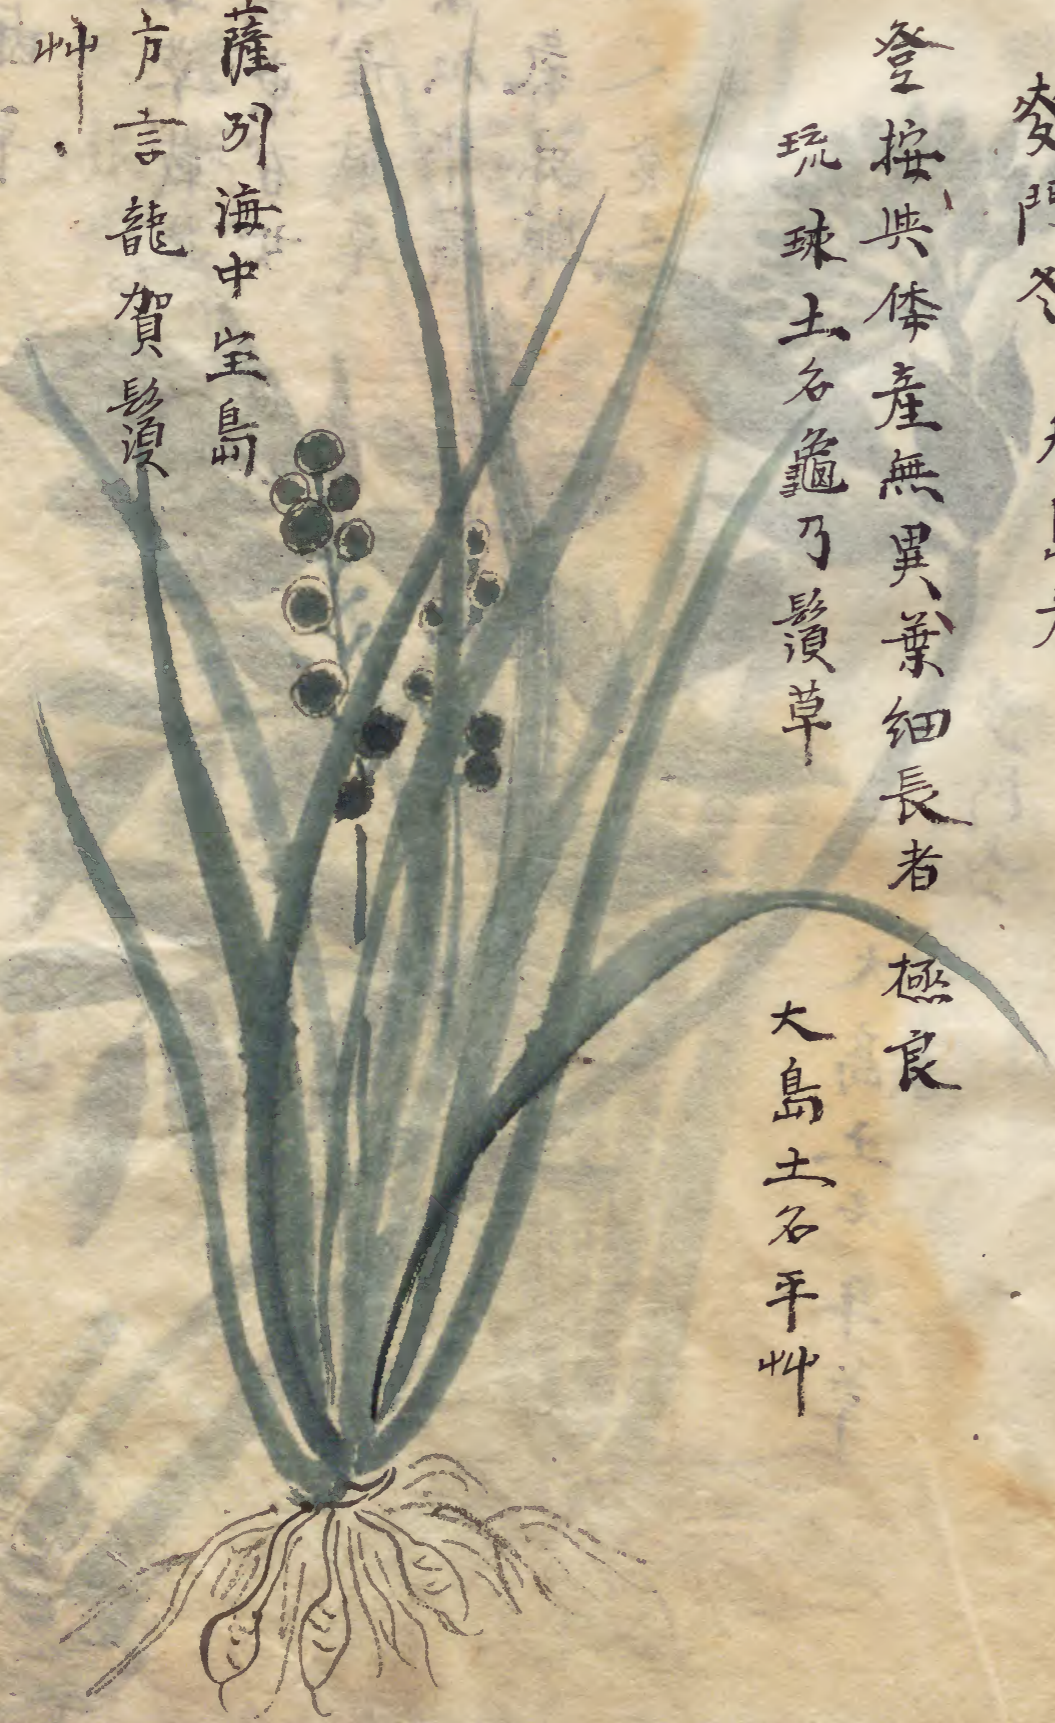 麥門冬
登按與倭產無異葉細長者極良
琉球土名龜乃鬚草
大島土名平艸
薩州海中宝島
方言龍賀鬚
艸